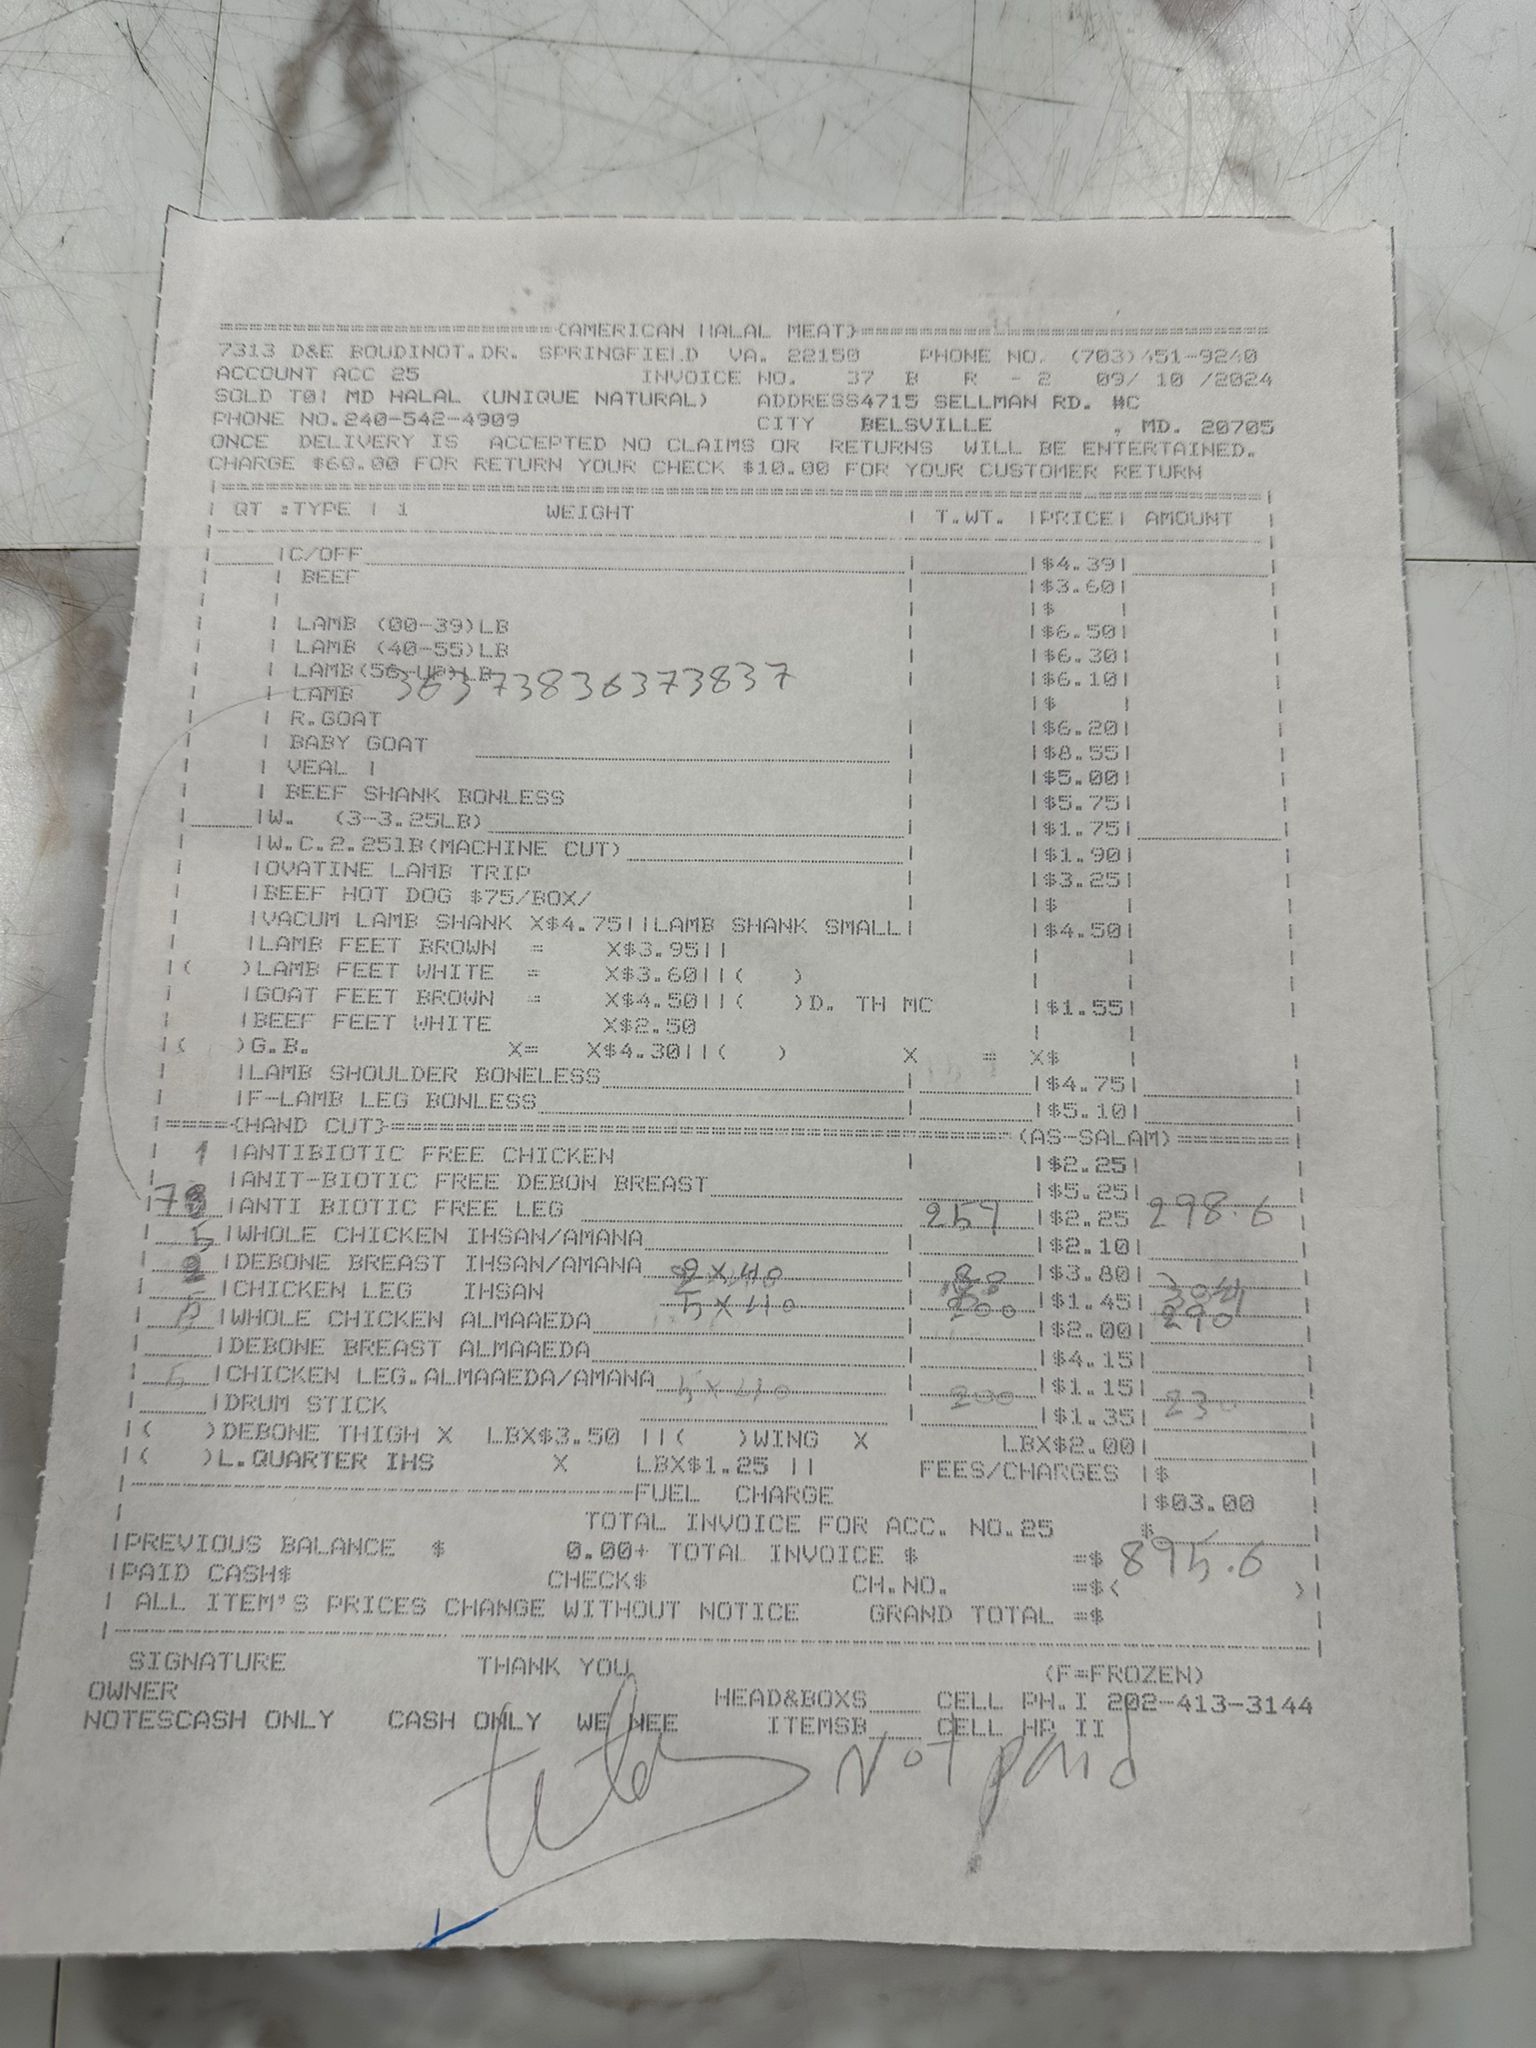 =======================(AMERICAN HALAL MEAT)============================
7313 D&E BOUDINOT.DR. SPRINGFIELD VA. 22150 PHONE NO. (703)451-9240
ACCOUNT ACC 25 INVOICE NO. 37 B R - 2 09/ 10 /2024
SOLD TO: MD HALAL (UNIQUE NATURAL) ADDRESS4715 SELLMAN RD. #C
PHONE NO.240-542-4909 CITY BELSVILLE , MD. 20705
ONCE DELIVERY IS ACCEPTED NO CLAIMS OR RETURNS WILL BE ENTERTAINED.
CHARGE $60.00 FOR RETURN YOUR CHECK $10.00 FOR YOUR CUSTOMER RETURN
| QT :TYPE | 1 WEIGHT | T.WT. |PRICE| AMOUNT
|C/OFF |$4.39|
| BEEF |$3.60|
|$ |
| LAMB (00-39)LB |$6.50|
| LAMB (40-55)LB |$6.30|
| LAMB(56-UP)LB |$6.10|
| LAMB 36373836373837 |$ |
| R.GOAT |$6.20|
| BABY GOAT |$8.55|
| VEAL | |$5.00|
| BEEF SHANK BONLESS |$5.75|
|W. (3-3.25LB) |$1.75|
|W.C.2.25lB(MACHINE CUT) |$1.90|
|OVATINE LAMB TRIP |$3.25|
|BEEF HOT DOG $75/BOX/ |$ |
|VACUM LAMB SHANK X$4.75||LAMB SHANK SMALL| |$4.50|
|LAMB FEET BROWN = X$3.95||
|( )LAMB FEET WHITE = X$3.60||( )
|GOAT FEET BROWN = X$4.50||( )D. TH MC |$1.55|
|BEEF FEET WHITE X$2.50
|( )G.B. X= X$4.30||( ) X = X$ |
|LAMB SHOULDER BONELESS |$4.75|
|F-LAMB LEG BONLESS |$5.10|
|=====(HAND CUT)==========================================(AS-SALAM)=======|
1 |ANTIBIOTIC FREE CHICKEN |$2.25|
|ANIT-BIOTIC FREE DEBON BREAST |$5.25|
|ANTI BIOTIC FREE LEG |$2.25 298.6
5 |WHOLE CHICKEN IHSAN/AMANA |$2.10|
2 |DEBONE BREAST IHSAN/AMANA 2 X 40 80 |$3.80| 304
5 |CHICKEN LEG IHSAN 5 X 40 200 |$1.45| 290
|WHOLE CHICKEN ALMAAEDA |$2.00|
|DEBONE BREAST ALMAAEDA |$4.15|
5 |CHICKEN LEG.ALMAAEDA/AMANA 5 X 40 200 |$1.15| 230
|DRUM STICK |$1.35|
|( )DEBONE THIGH X LBX$3.50 ||( )WING X LBX$2.00|
|( )L.QUARTER IHS X LBX$1.25 || FEES/CHARGES |$
FUEL CHARGE |$03.00
TOTAL INVOICE FOR ACC. NO.25 $
|PREVIOUS BALANCE $ 0.00+ TOTAL INVOICE $ =$ 895.6
|PAID CASH$ CHECK$ CH.NO. =$( )
| ALL ITEM'S PRICES CHANGE WITHOUT NOTICE GRAND TOTAL =$
SIGNATURE THANK YOU (F=FROZEN)
OWNER HEAD&BOXS____ CELL PH.I 202-413-3144
NOTESCASH ONLY CASH ONLY WE NEE ITEMSB____ CELL HP II
Not paid